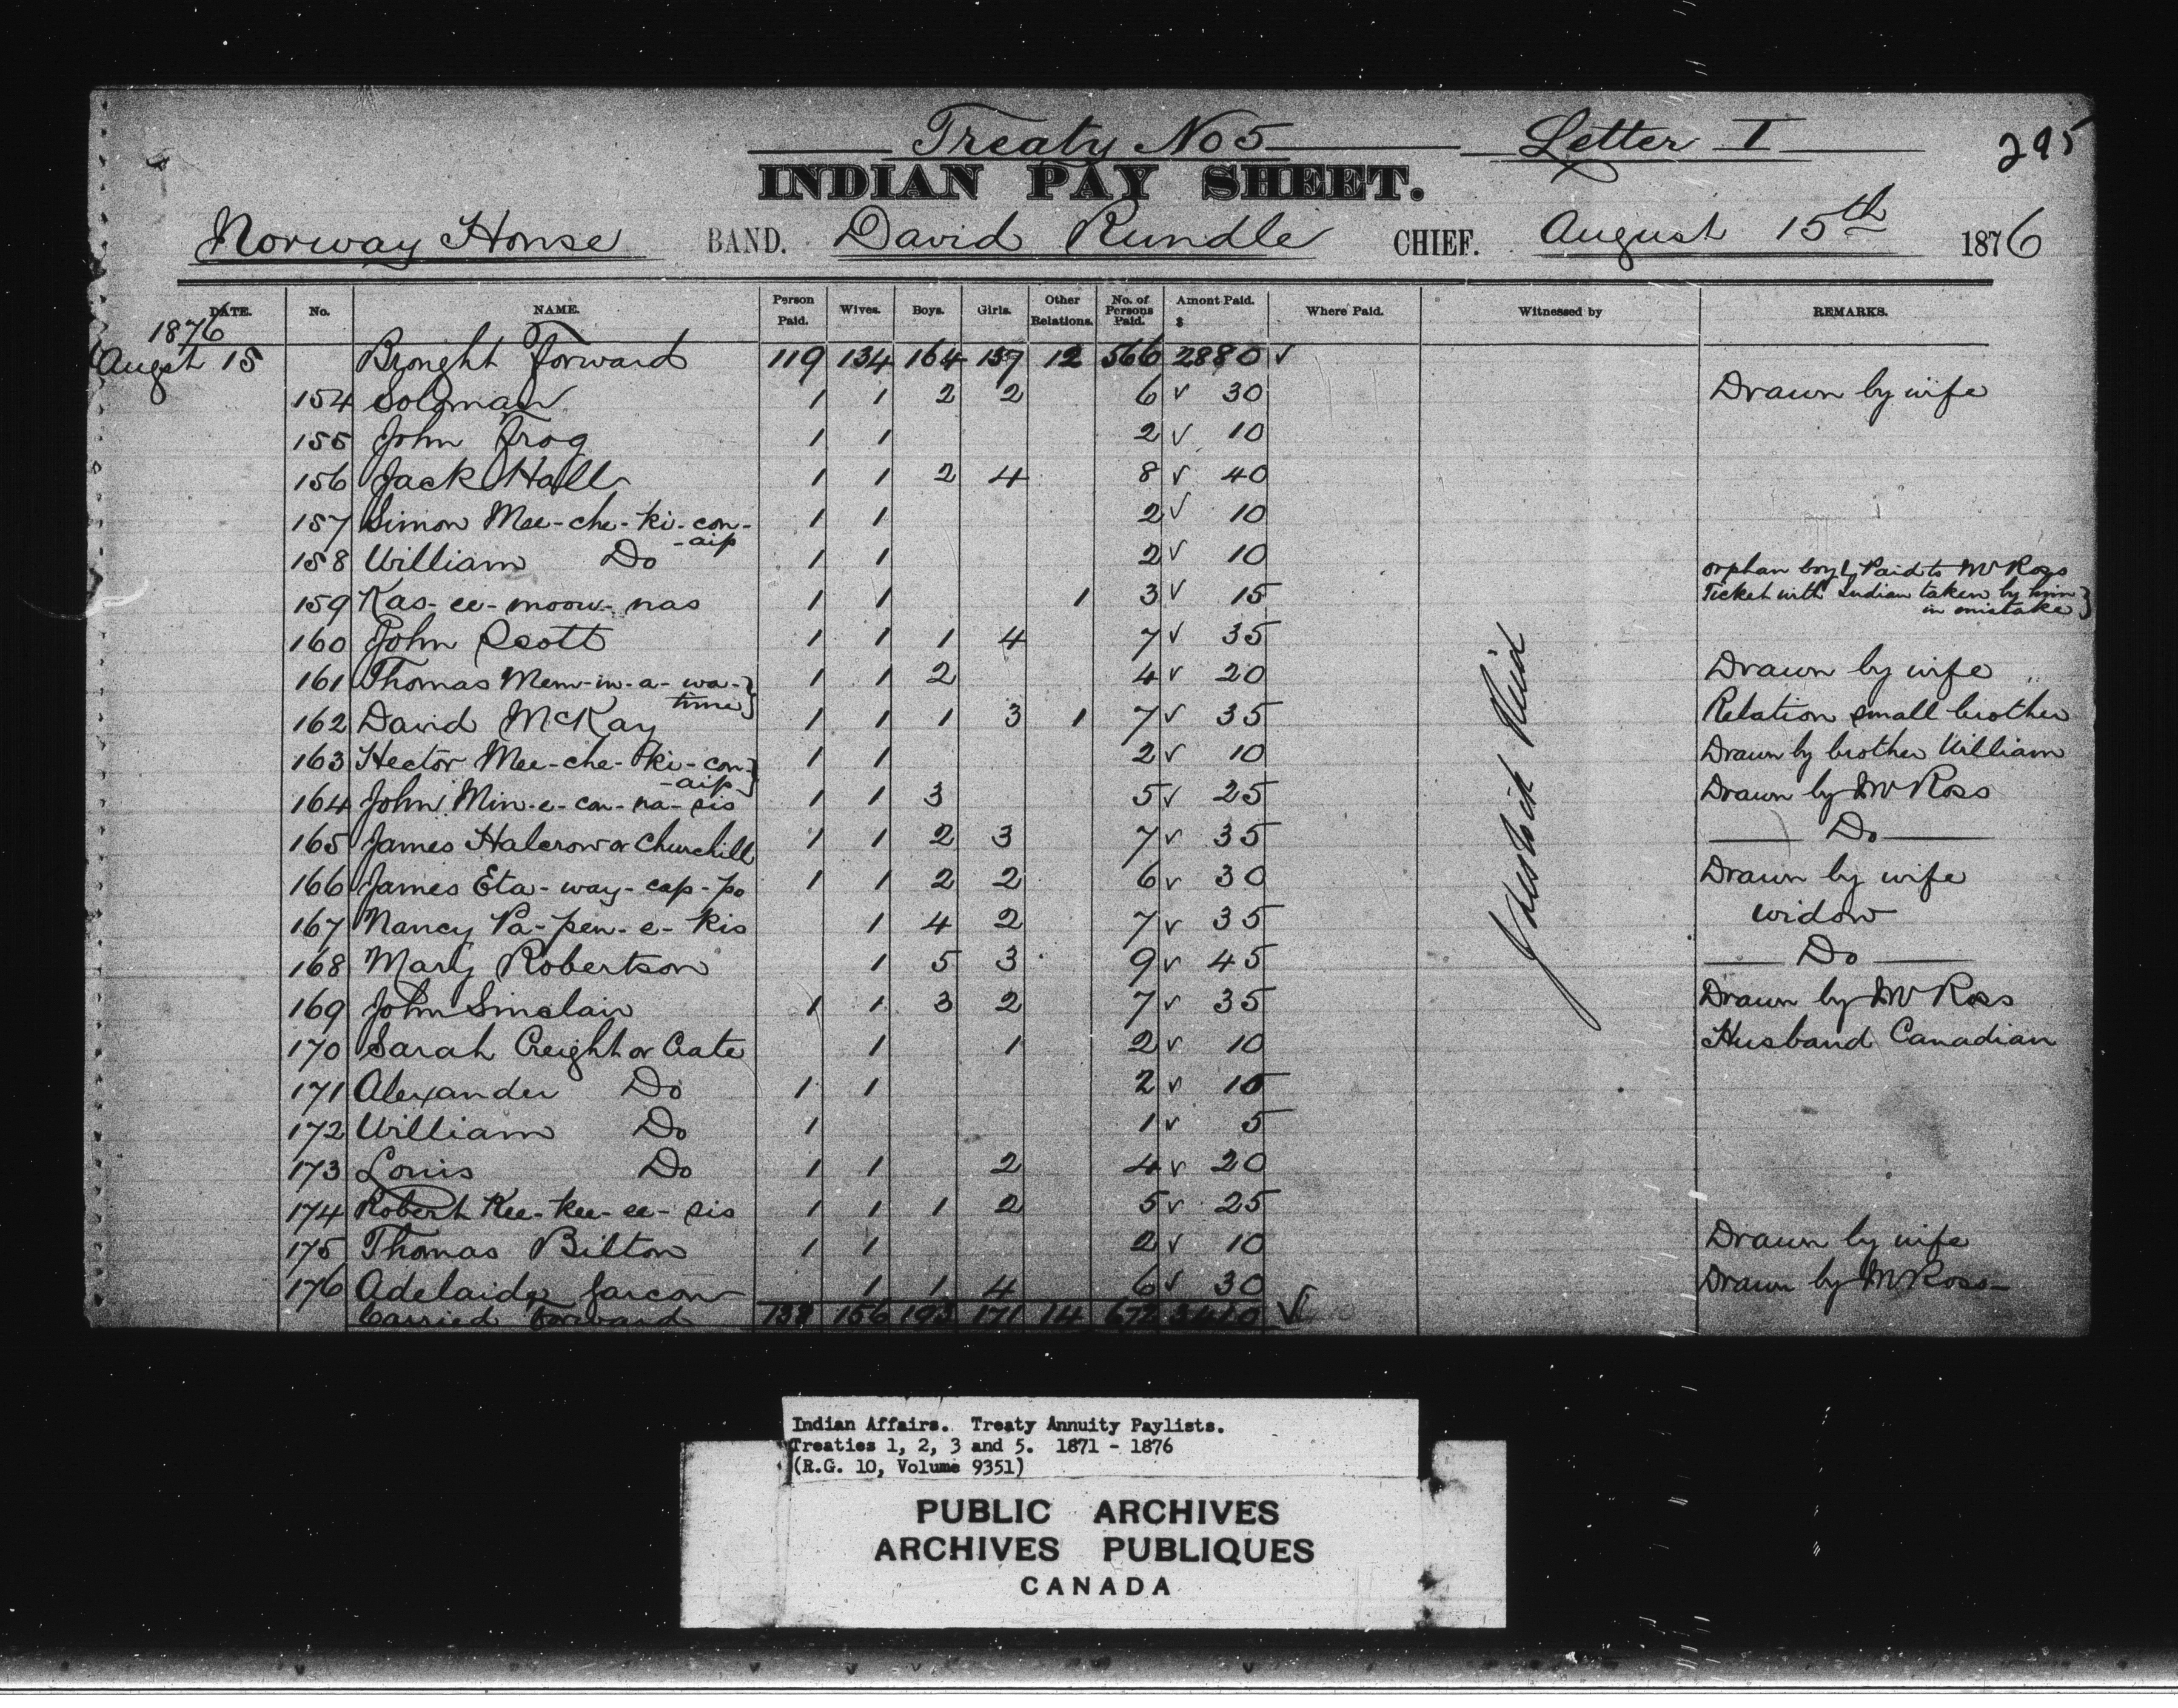 Treaty No 5 Letter I 295
INDIAN PAY SHEET.
Norway House BAND. David Rundle CHIEF. August 15th 1876
DATE. No. NAME. Person Paid. Wives. Boys. Girls. Other Relations. No. of Persons Paid. Amont Paid. $ Where Paid. Witnessed by REMARKS.
1876
Augst 15 Brought Forward 119 134 164 137 12 566 2880 ✓
154 Soloman 1 1 2 2 6 ✓ 30 Drawn by wife
155 John Frog 1 1 2 ✓ 10
156 Jack Hall 1 1 2 4 8 ✓ 40
157 Simon Mee-che-ki-con-aip 1 1 2 ✓ 10
158 William Do 1 1 2 ✓ 10
159 Kas-ee-moow-nas 1 1 1 3 ✓ 15 orphan boy Paid to Mr Ross
Ticket with Indian taken by him
in mistake }
160 John Scott 1 1 1 4 7 ✓ 35
161 Thomas Mem-in-a-wa-time } 1 1 2 4 ✓ 20 Drawn by wife
162 David McKay 1 1 1 3 1 7 ✓ 35 Relation small brother
163 Hector Mee-che-ki-con-aip } 1 1 2 ✓ 10 Drawn by brother William
164 John Min-e-con-na-sis 1 1 3 5 ✓ 25 Drawn by Mr Ross
165 James Halcrow or Churchill 1 1 2 3 7 ✓ 35 Do
166 James Eta-way-cap-po 1 1 2 2 6 ✓ 30 Drawn by wife
167 Nancy Pa-pen-e-kis 1 4 2 7 ✓ 35 widow
168 Mary Robertson 1 5 3 9 ✓ 45 Do
169 John Sinclair 1 1 3 2 7 ✓ 35 Drawn by Mr Ross
170 Sarah Creight or Cate 1 1 2 ✓ 10 Husband Canadian
171 Alexander Do 1 1 2 ✓ 10
172 William Do 1 1 ✓ 5
173 Louis Do 1 1 2 4 ✓ 20
174 Robert Kee-kee-ee-sis 1 1 1 2 5 ✓ 25
175 Thomas Bilton 1 1 2 ✓ 10 Drawn by wife
176 Adelaide 1 1 4 6 ✓ 30 Drawn by Mr Ross
Carried Forward 139 156 193 171 14 672 3410 ✓
Indian Affairs. Treaty Annuity Paylists.
Treaties 1, 2, 3 and 5. 1871 - 1876
(R.G. 10, Volume 9351)
PUBLIC ARCHIVES
ARCHIVES PUBLIQUES
CANADA